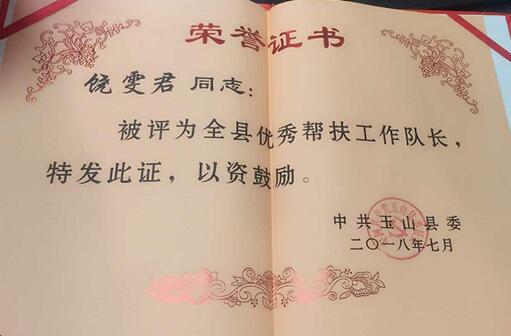 荣誉证书
饶雯君 同志：
被评为全县优秀帮扶工作队长，
特发此证，以资鼓励。
中共玉山县委
二〇一八年七月